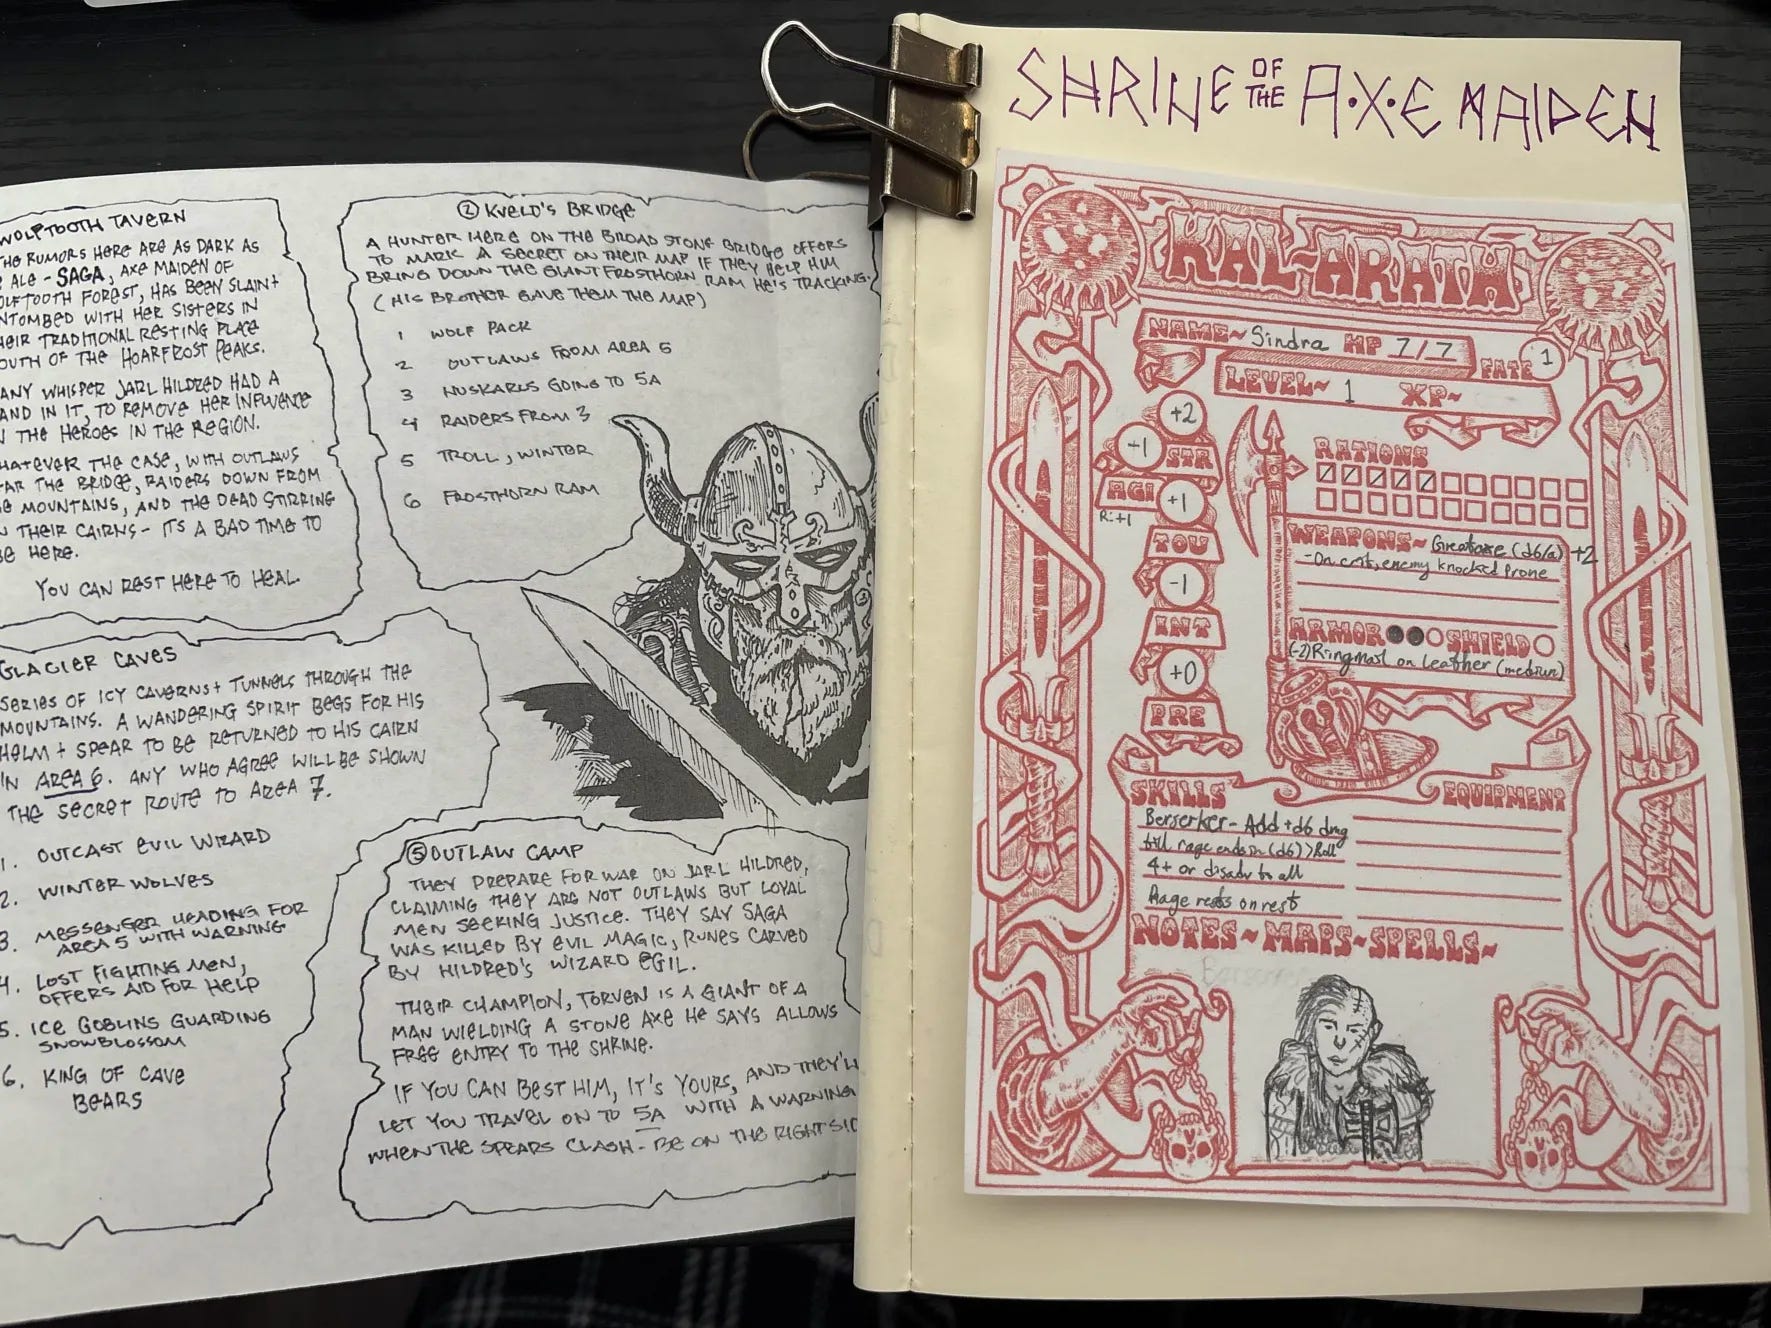 WOLFTOOTH TAVERN
THE RUMORS HERE ARE AS DARK AS
ALE - SAGA, AXE MAIDEN OF
WOLFTOOTH FOREST, HAS BEEN SLAIN +
ENTOMBED WITH HER SISTERS IN
THEIR TRADITIONAL RESTING PLACE
SOUTH OF THE HOARFROST PEAKS.
MANY WHISPER JARL HILDRED HAD A
HAND IN IT, TO REMOVE HER INFLUENCE
ON THE HEROES IN THE REGION.
WHATEVER THE CASE, WITH OUTLAWS
THE BRIDGE, RAIDERS DOWN FROM
THE MOUNTAINS, AND THE DEAD STIRRING
IN THEIR CAIRNS - IT'S A BAD TIME TO
BE HERE.
YOU CAN REST HERE TO HEAL.
② KVELD'S BRIDGE
A HUNTER HERE ON THE BROAD STONE BRIDGE OFFERS
TO MARK A SECRET ON THEIR MAP IF THEY HELP HIM
BRING DOWN THE GIANT FROSTHORN RAM HE'S TRACKING.
(HIS BROTHER GAVE THEM THE MAP)
1 WOLF PACK
2 OUTLAWS FROM AREA 5
3 HUSKARLS GOING TO 5A
4 RAIDERS FROM 3
5 TROLL, WINTER
6 FROSTHORN RAM
GLACIER CAVES
SERIES OF ICY CAVERNS + TUNNELS THROUGH THE
MOUNTAINS. A WANDERING SPIRIT BEGS FOR HIS
HELM + SPEAR TO BE RETURNED TO HIS CAIRN
IN AREA 6. ANY WHO AGREE WILL BE SHOWN
THE SECRET ROUTE TO AREA 7.
1. OUTCAST EVIL WIZARD
2. WINTER WOLVES
3. MESSENGER HEADING FOR
AREA 5 WITH WARNING
4. LOST FIGHTING MEN,
OFFERS AID FOR HELP
5. ICE GOBLINS GUARDING
SNOWBLOSSOM
6. KING OF CAVE
BEARS
⑤ OUTLAW CAMP
THEY PREPARE FOR WAR ON JARL HILDRED,
CLAIMING THEY ARE NOT OUTLAWS BUT LOYAL
MEN SEEKING JUSTICE. THEY SAY SAGA
WAS KILLED BY EVIL MAGIC, RUNES CARVED
BY HILDRED'S WIZARD EGIL.
THEIR CHAMPION, TORVEN IS A GIANT OF A
MAN WIELDING A STONE AXE HE SAYS ALLOWS
FREE ENTRY TO THE SHRINE.
IF YOU CAN BEST HIM, IT'S YOURS, AND THEY'LL
LET YOU TRAVEL ON TO 5A WITH A WARNING
WHEN THE SPEARS CLASH - BE ON THE RIGHT SID
SHRINE OF THE A·X·E MAIDEN
KAL-ARATH
NAME~ Sindra HP 7/7
FATE 1
LEVEL~ 1 XP~
+2
STR
+1
AGI
R:+1
+1
TOU
-1
INT
+0
PRE
RATIONS
WEAPONS~ Greataxe (d6/a) +2
-On crit, enemy knocked prone
ARMOR SHIELD
(-2) Ringmail on Leather (medium)
SKILLS
EQUIPMENT
Berserker - Add +d6 dmg
till rage ends in (d6) > Roll
4+ or disadv to all
Rage resets on rest
NOTES~MAPS~SPELLS~